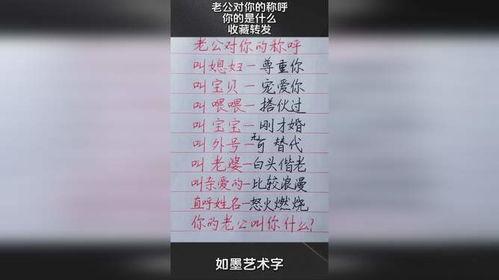 老公对你的称呼
你的是什么
收藏转发
老公对你的称呼
叫媳妇—尊重你
叫宝贝—宠爱你
叫喂喂—搭伙过
叫宝宝—刚才婚
叫外号—无可替代
叫老婆—白头偕老
叫亲爱的—比较浪漫
直呼姓名—怒火燃烧
你的老公叫你什么?
如墨艺术字